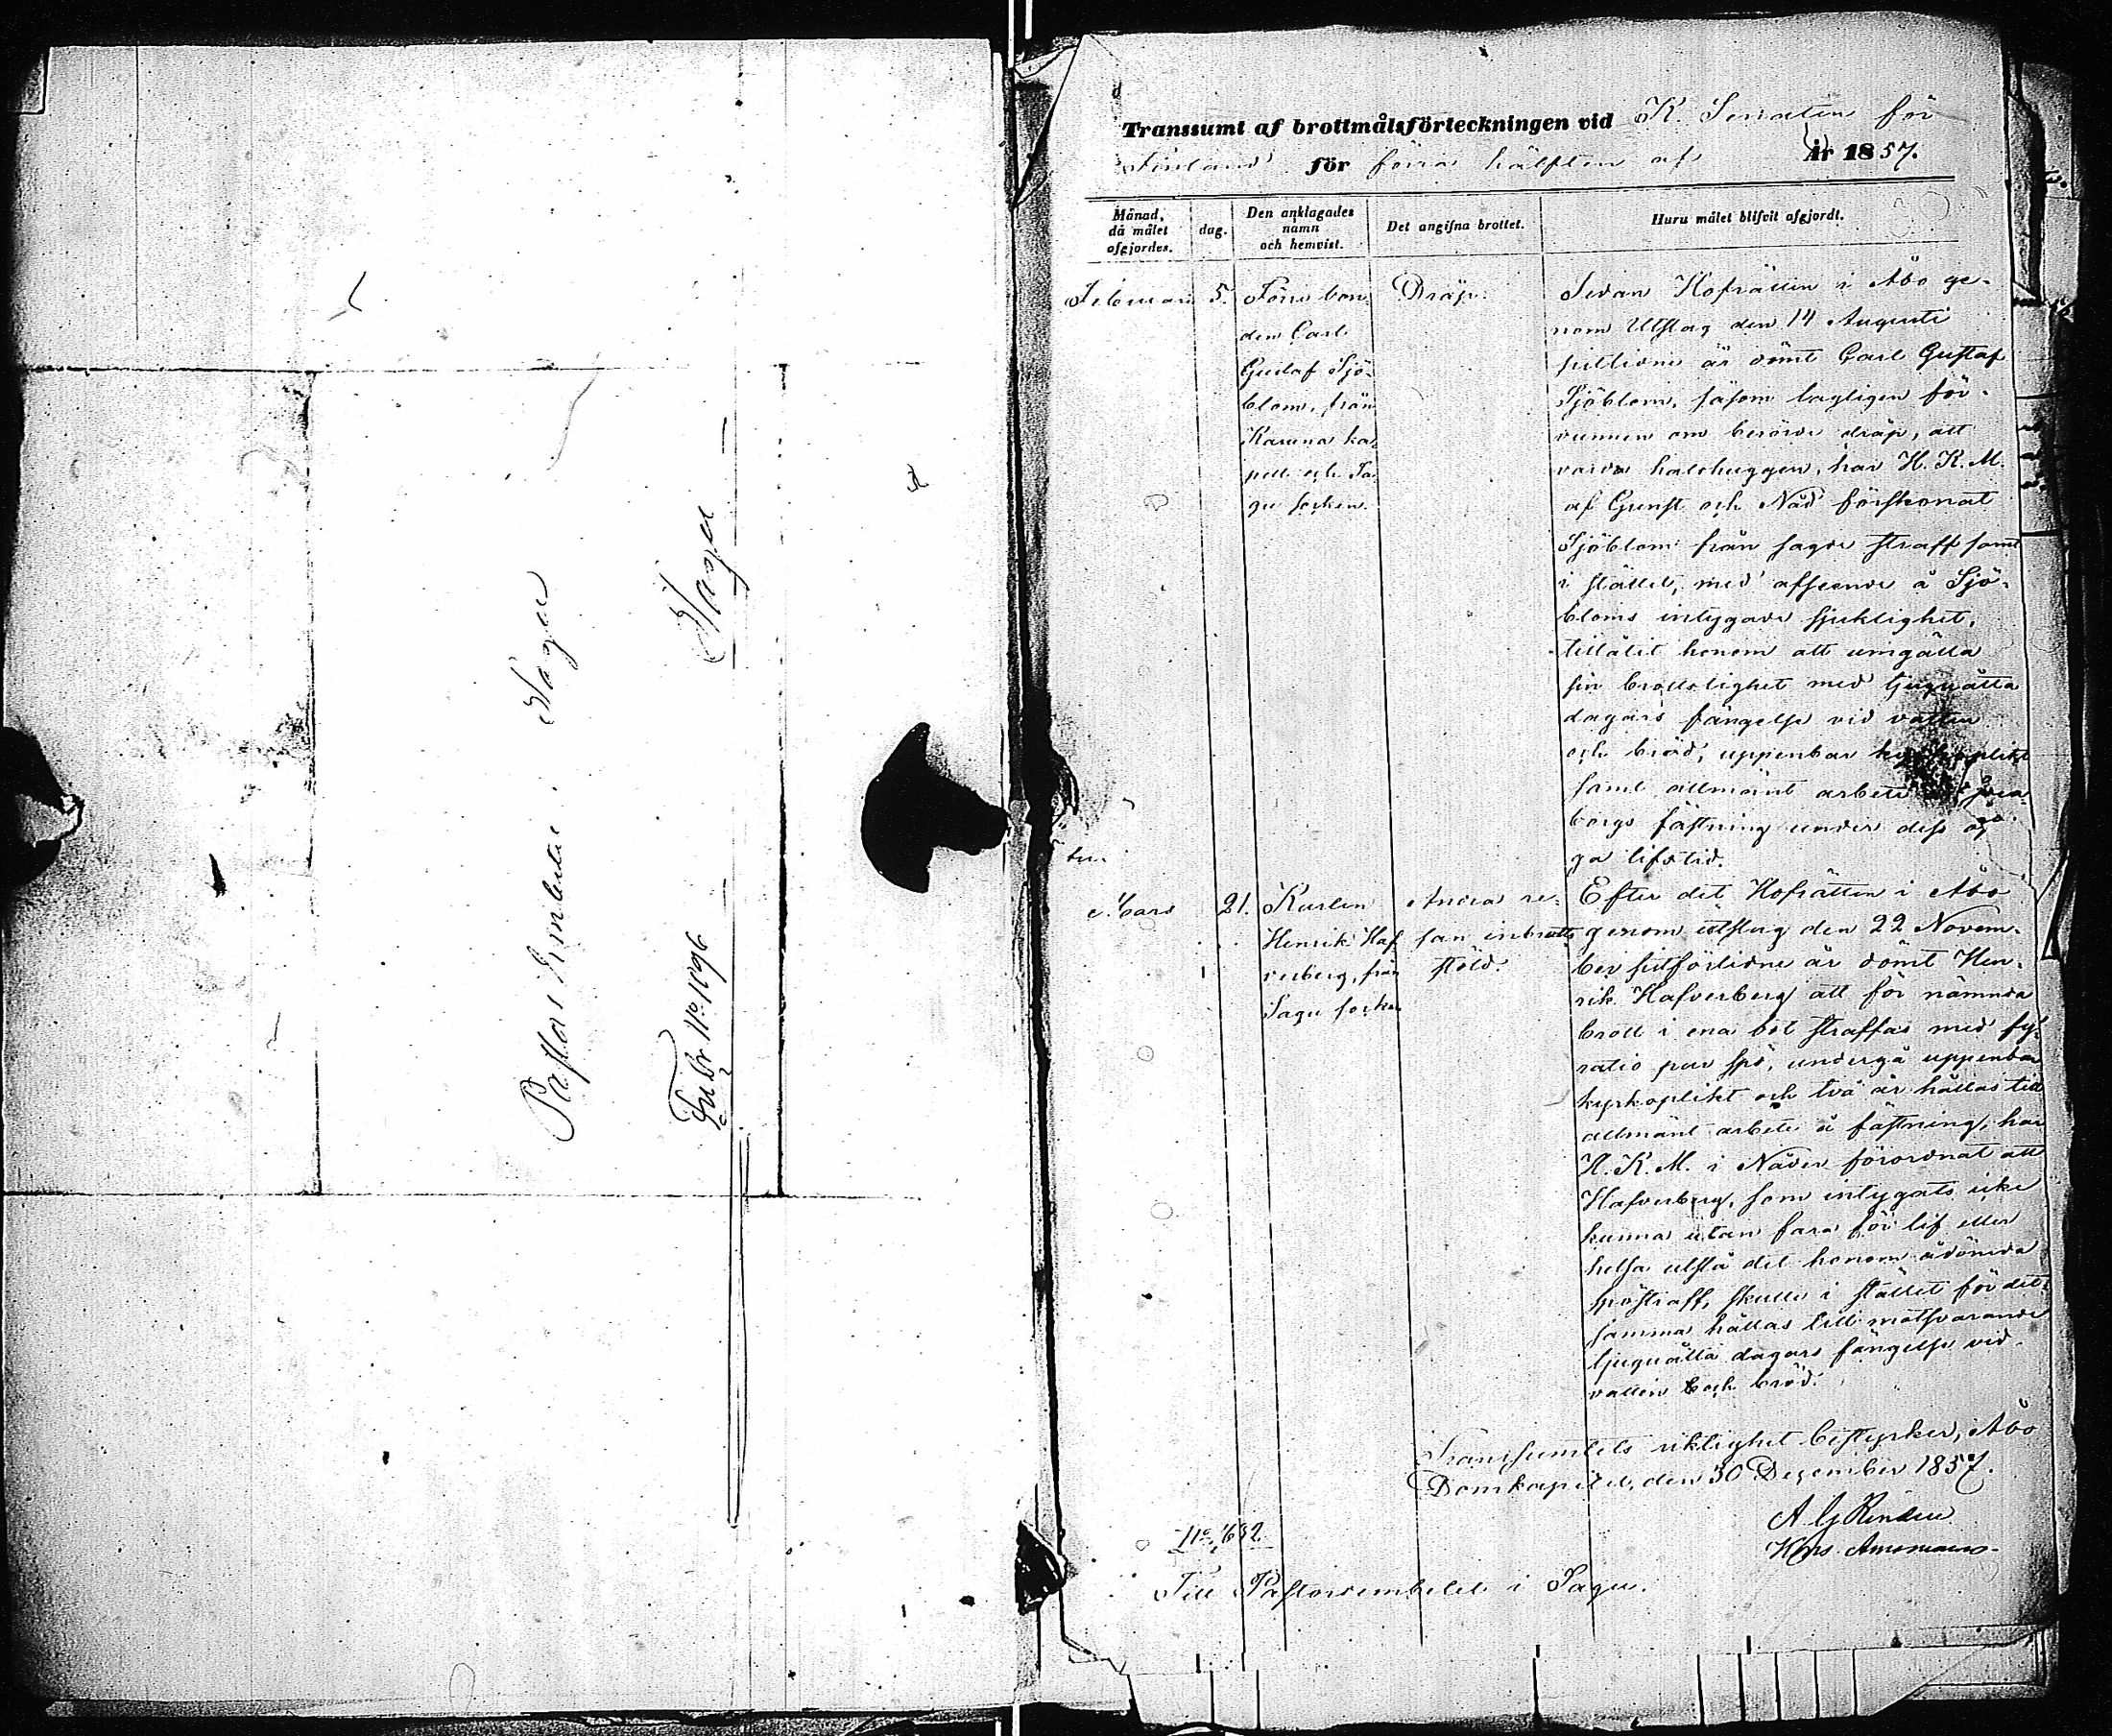 Pastors Embetet i Sagu
Sagu
Fr. Br. No 1896
Transsumt af brottmålsförteckningen vid K. Senaten för
Finland för förra hälften af År 1857.
Månad, då målet afgjordes.
dag.
Den anklagades namn och hemvist.
Det angifna brottet.
Huru målet blifvit afgjordt.
Februari
5.
Förre bon-
den Carl
Gustaf Sjö-
blom, från
Karuna ka-
pell och Sa-
gu socken.
Dråp.
Sedan Hofrätten i Åbo ge-
nom Utslag den 14 Augusti
sistlidne år dömt Carl Gustaf
Sjöblom, såsom lagligen för-
vunnen om berörde dråp, att
varda halshuggen, har H. K. M.
af Gunst och Nåd förskonat
Sjöblom från sagde straff samt
i stället, med afseende å Sjö-
bloms intygade sjuklighet,
tillåtit honom att umgälla
sin brottslighet med tjuguåtta
dagars fängelse vid vatten
och bröd, uppenbar kyrkoplikt
samt allmänt arbete å Svea-
borgs fästning under dess öf-
ga lifstid.
Mars
21.
Karlen
Henrik Haf-
verberg, från
Sagu socken
Andra re-
san inbrotts
stöld.
Efter det Hofrätten i Åbo
genom utslag den 22 Novem-
ber sistförlidne år dömt Hen-
rik Hafverberg att för nämnda
brott i ena bot straffas med fy-
ratio par spö, undergå uppenbar
kyrkoplikt och två år hållas till
allmänt arbete å fästning, har
H. K. M. i Nåder förordnat att
Hafverberg, som intygats icke
kunna utan fara för lif eller
helsa utstå det honom ådömda
spöstraff, skulle i stället för det-
samma hållas till motsvarande
tjuguåtta dagars fängelse vid
vatten och bröd.
Transsumtets riktighet bestyrker, Åbo
Domkapitel, den 30 December 1857.
A G Rindell
Kons. Amanuens.
No 1692
Till Pastorsembetet i Sagu.